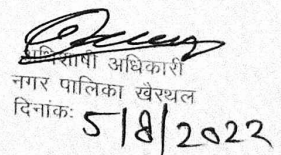 अधिशाषी अधिकारी
नगर पालिका खैरथल
दिनांक: 5/8/2022